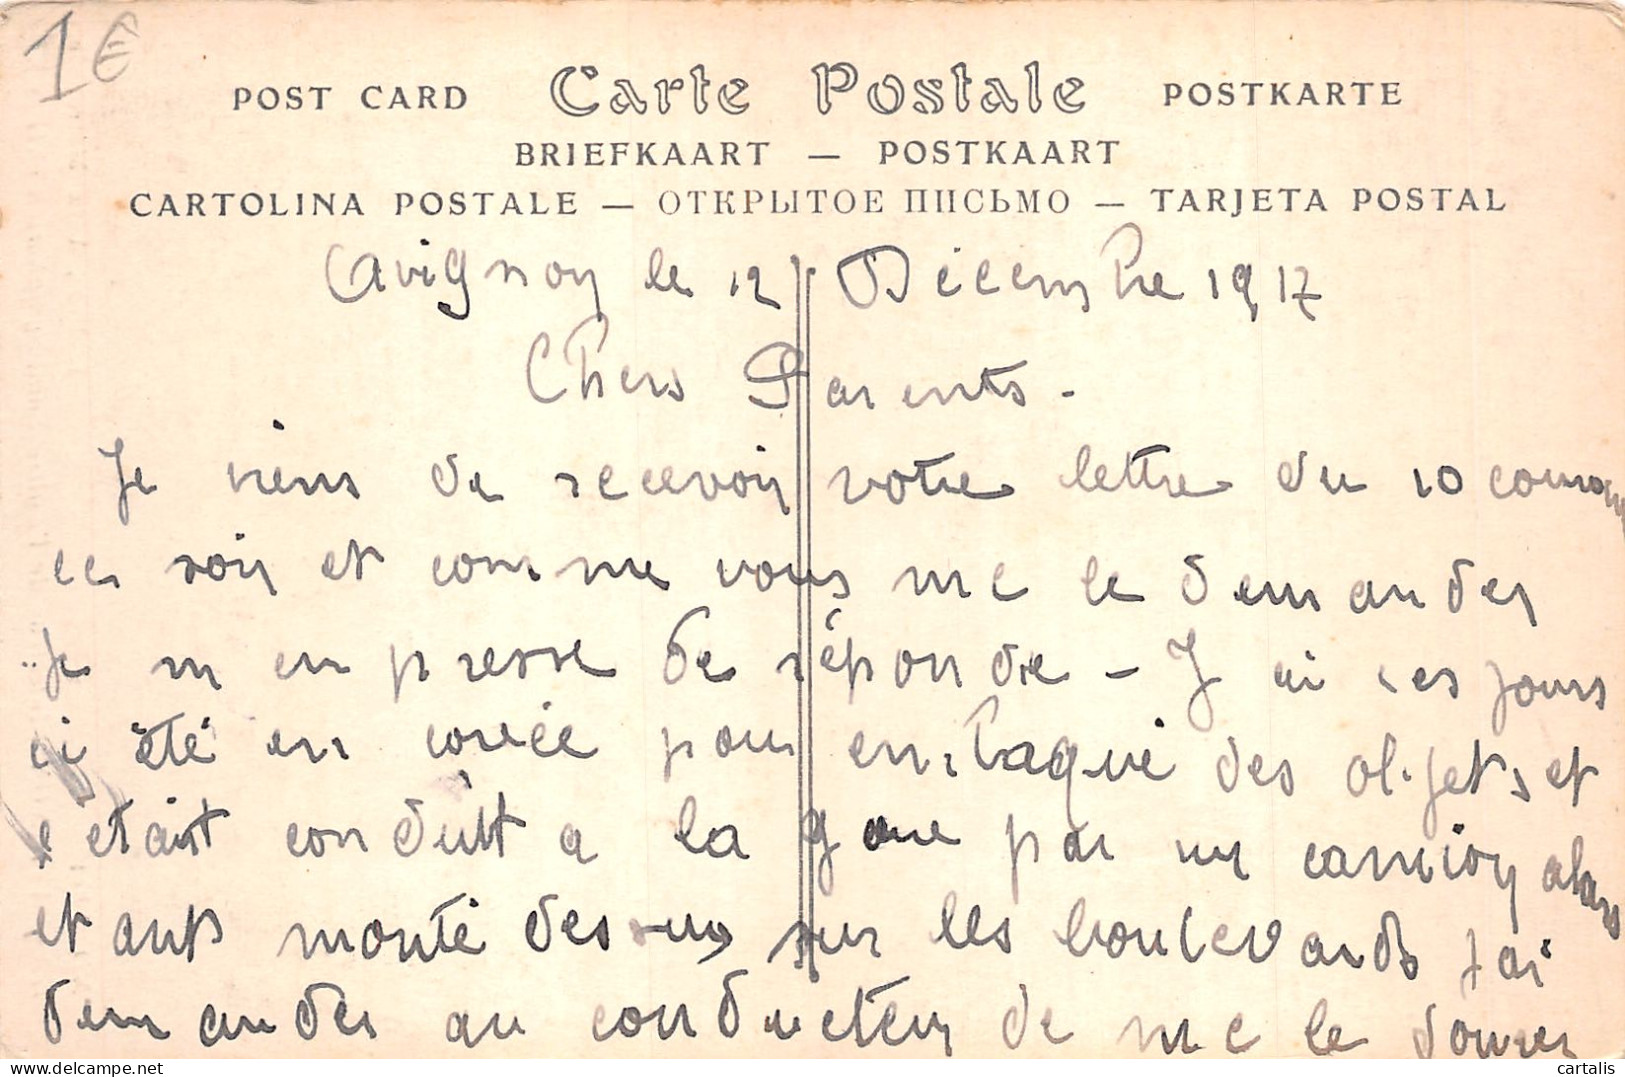 1€
POST CARD Carte Postale POSTKARTE
BRIEFKAART — POSTKAART
CARTOLINA POSTALE — ОТКРЫТОЕ ПИСЬМО — TARJETA POSTAL
Avignon le 12 Décembre 1917
Chers Parents -
Je viens de recevoir votre lettre du 10 courant
ce soir et comme vous me le demander
je m en presse de réponde - J ai ces jours
ci été en corvée pour enbaqué des objets et
c etait conduit a la gare par un camion alors
etant monté dessus sur les boulevards j ai
demander au conducteur de me le donner
cartalis
www.delcampe.net